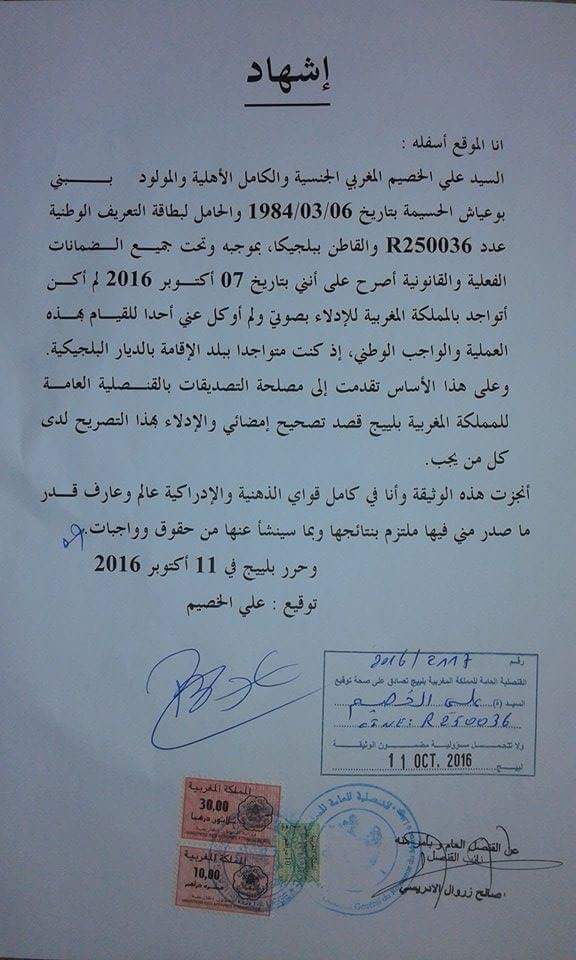 إشهاد
انا الموقع أسفله :
السيد علي الخصيم المغربي الجنسية والكامل الأهلية والمولود بــــبني
بوعياش الحسيمة بتاريخ 1984/03/06 والحامل لبطاقة التعريف الوطنية
عدد R250036 والقاطن ببلجيكا، بموجبه وتحت جميع الضمانات
الفعلية والقانونية أصرح على أنني بتاريخ 07 أكتوبر 2016 لم أكن
أتواجد بالمملكة المغربية للإدلاء بصوتي ولم أوكل عني أحدا للقيام بهذه
العملية والواجب الوطني، إذ كنت متواجدا ببلد الإقامة بالديار البلجيكية.
وعلى هذا الأساس تقدمت إلى مصلحة التصديقات بالقنصلية العامة
للمملكة المغربية بلييج قصد تصحيح إمضائي والإدلاء بهذا التصريح لدى
كل من يجب.
أنجزت هذه الوثيقة وأنا في كامل قواي الذهنية والإدراكية عالم وعارف قدر
ما صدر مني فيها ملتزم بنتائجها وبما سينشأ عنها من حقوق وواجبات.
وحرر بلييج في 11 أكتوبر 2016
توقيع : علي الخصيم
رقم 2016/2117
القنصلية العامة للمملكة المغربية بلييج تصادق على صحة توقيع
السيد (ة) علي الخصيم
CINE: R250036
ولا تتحمل مسؤولية مضمون الوثيقة
لييج 11 OCT. 2016
المملكة المغربية
30,00
ثلاثون درهما
المملكة المغربية
10,00
عشرة دراهم
عن القنصل العام و بأمر منه
نائب القنصل
صالح زروال الادريسي